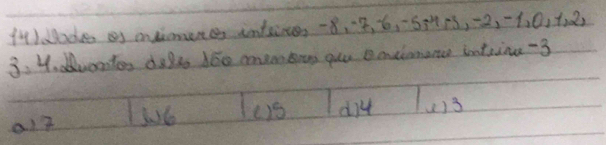 14) Dados os números inteiros -8, -7, -6, -5, -4, -3, -2, -1, 0, 1, 2,
3, 4. Quantos deles são menores que o número inteiro -3
a) 7 b) 6 c) 5 d) 4 e) 3